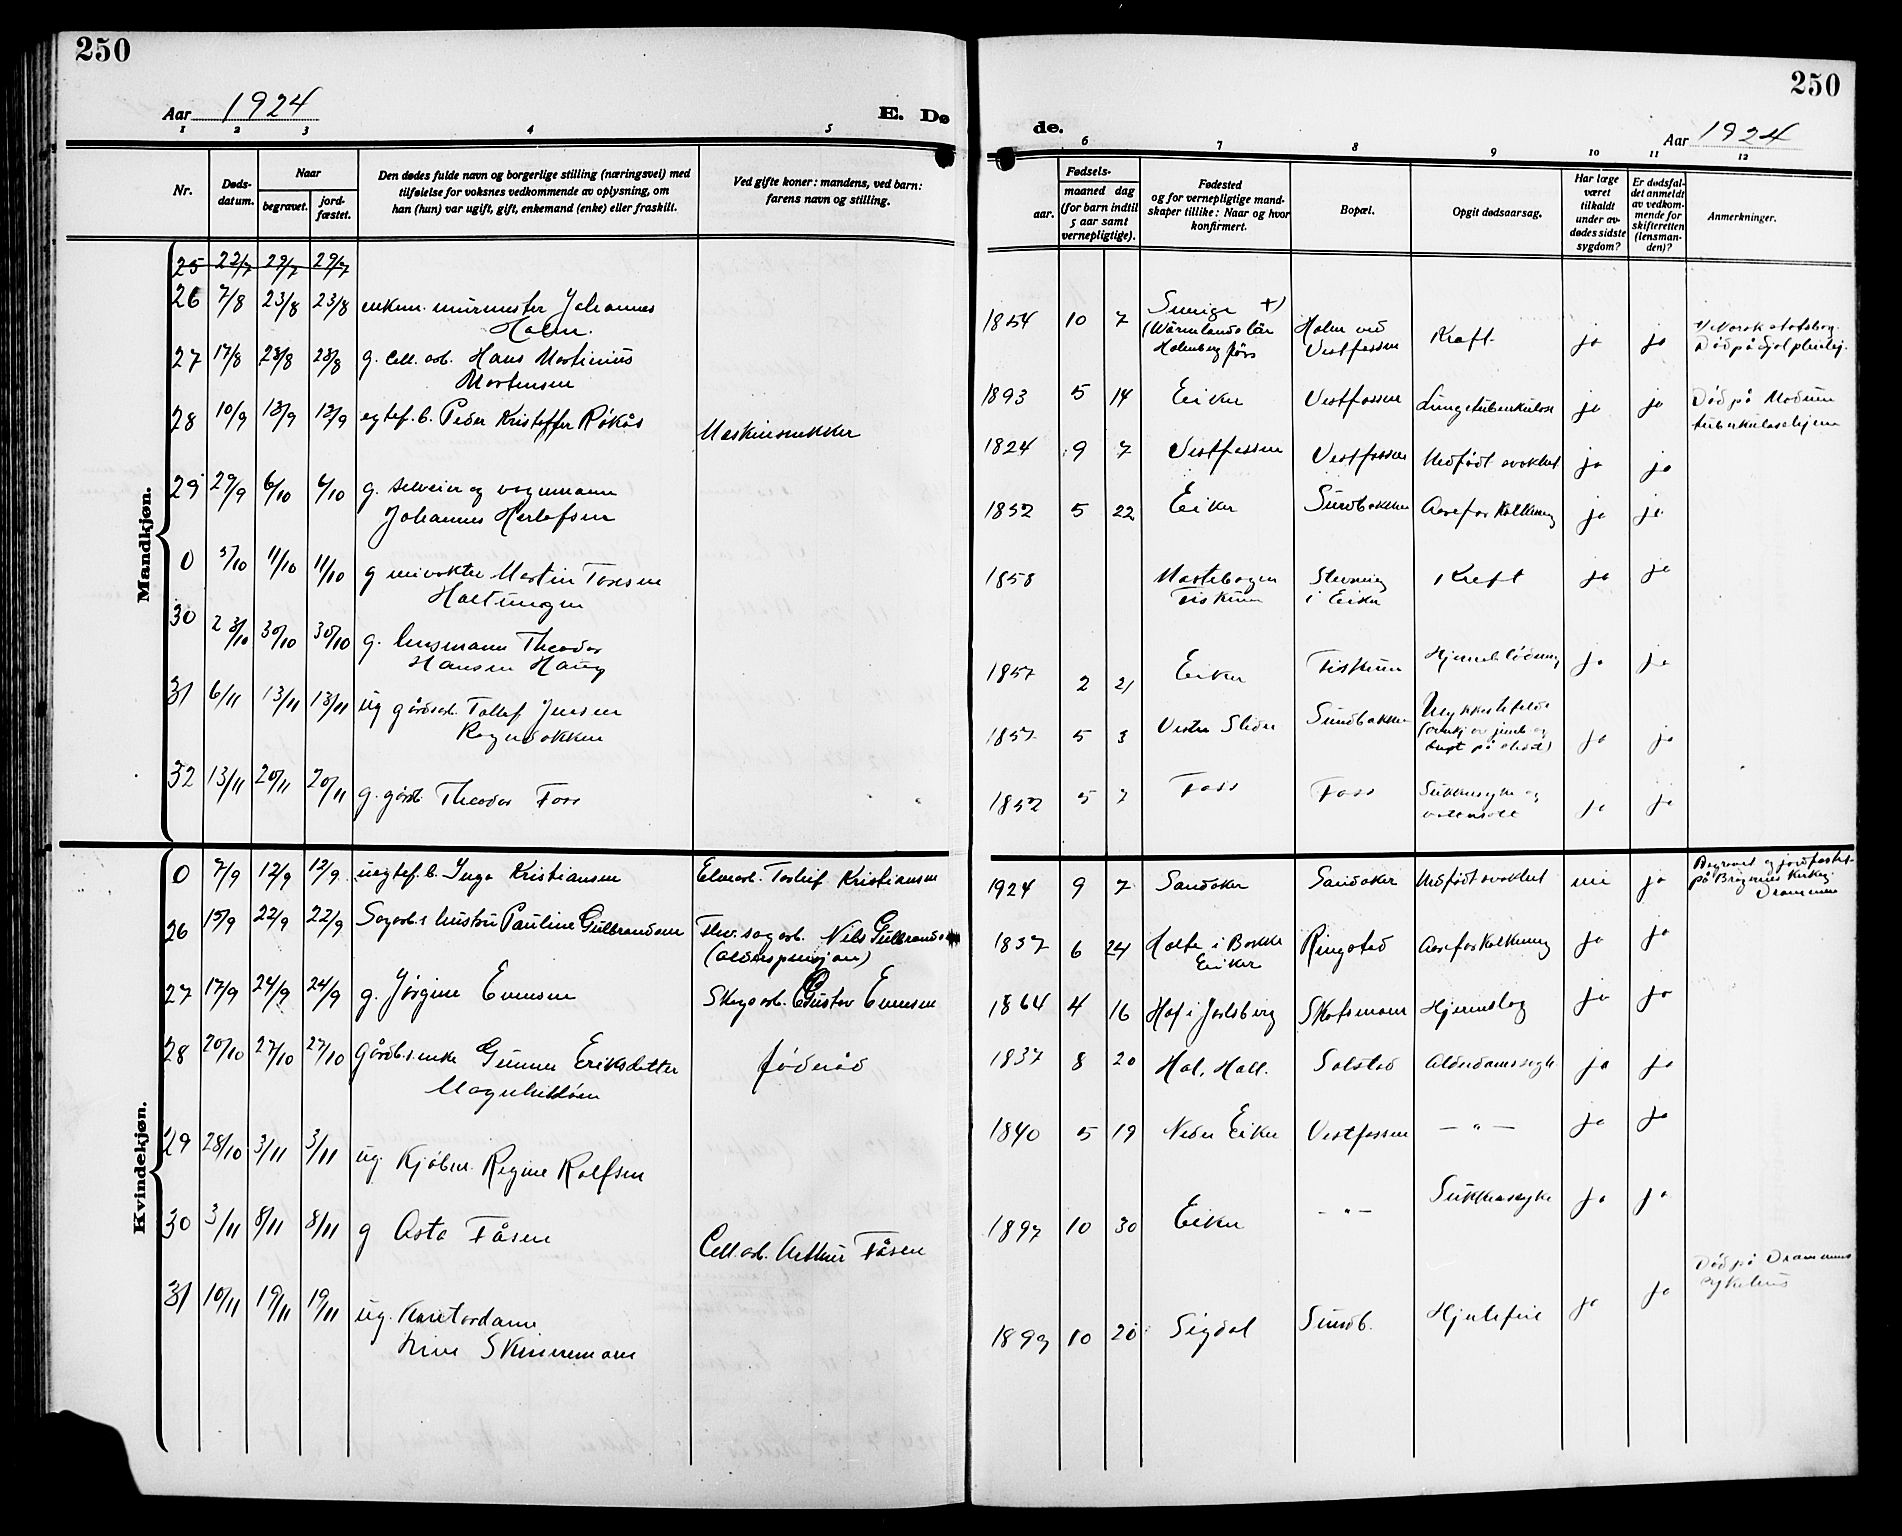 250
Aar 1924
E. Dø
1 2 3 4 5
Nr.
Døds-
datum.
Naar
begravet.
jord-
fæstet.
Den dødes fulde navn og borgerlige stilling (næringsvei) med
tilføielse for voksnes vedkommende av oplysning, om
han (hun) var ugift, gift, enkemand (enke) eller fraskilt.
Ved gifte koner: mandens, ved barn:
farens navn og stilling.
Mandkjøn.
25 22/7 29/7 29/7
26 7/8 23/8 23/8 enkem. murmester Johannes
Holm.
27 17/8 23/8 23/8 g. Cell. arb. Hans Martinius
Mortensen
28 10/9 13/9 13/9 egtef. b. Peder Kristoffer Røkås Maskinsnekker
29 29/9 6/10 6/10 g. selveier og vognmann
Johannes Herlofsen
0 5/10 11/10 11/10 g Martin Toresen
30 23/10 30/10 30/10 g. lensmann Theodor
Hansen Haug
31 6/11 13/11 13/11 ug gårdarb. Tollef Jensen
32 13/11 20/11 20/11 g. gårdb. Theodor Foss
Kvindekjøn.
0 7/9 12/9 12/9 uegtef. b. Inga Kristiansen Elvearb. Torleif Kristiansen
26 15/9 22/9 22/9 Sagarb.s hustru Pauline Gulbrandsen Fhv. sagarb. Nils Gulbrandsen
(alderspensjon)
27 17/9 24/9 24/9 g. Jørgine Evensen Skogarb. Gustav Evensen
28 20/10 27/10 27/10 Gårdb.s enke Gunner Eriksdatter føderåd
29 28/10 3/11 3/11 ug. Kjøbm. Regine Rolfsen
30 3/11 8/11 8/11 g Asta Fåsen Cell. arb. Arthur Fåsen
31 10/11 19/11 19/11 ug. Kontordame
250
de.
Aar 1924
6 7 8 9 10 11 12
aar.
Fødsels-
maaned dag
(for barn indtil
5 aar samt
vernepligtige).
Fødested
og for vernepligtige mand-
skaper tillike: Naar og hvor
konfirmert.
Bopæl.
Opgit dødsaarsag.
Har læge
været
tilkaldt
under av-
dødes sidste
sygdom?
Er dødsfal-
det anmeldt
av vedkom-
mende for
skifteretten
(lensman-
den)?
Anmerkninger.
1854 10 7 Sverige +)
(Wärmlands län
Holm ved
Vestfossen
Kreft ja ja
1893 5 14 Eiker Vestfossen Lungetuberkulose ja ja Død på Modum
tuberkulosehjem
1924 9 7 Vestfossen Vestfossen Medfødt svakhet ja ja
1852 5 22 Eiker Sundbakken Aareforkalkning ja ja
1858 Fiskum i Eiker Kreft ja ja
1857 2 21 Eiker Fiskum Hjerneblødning ja ja
1857 5 3 Vestre Slidre Sundbakken Ulykkestilfelde
ja ja
1852 5 7 Foss Foss Sukkersyke og
ja ja
1924 9 7 Sandaker Sandaker Medfødt svakhet nei ja Begravet og jordfæstet
på Bragernes kirkeg.
Drammen
1837 6 24 Holte i Bakke
Eiker
Ringstad Aareforkalkning ja ja
1864 4 16 Hof i Jarlsberg Skotsmoen Hjerneslag ja ja
1837 8 20 Hol, Hall. Solstad Alderdomssvagh. ja ja
1840 5 19 Nedre Eiker Vestfossen — " — ja ja
1897 10 30 Eiker — " — Sukkersyke ja ja
1899 10 20 Sigdal Sundb. Hjertefeil ja ja Død på Drammens
sykehus